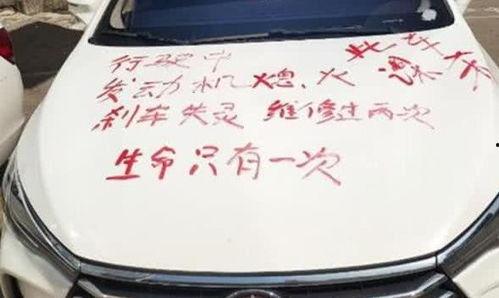 行驶中
发动机熄火
刹车失灵 维修过两次
生命只有一次
此车有